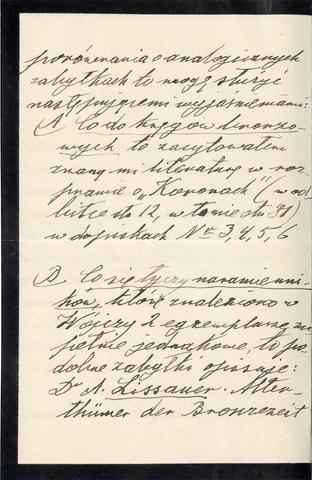 porównania o analogicznych
zabytkach to mogę służyć
następującemi wyjaśnieniami:
A. Co do kręgów bronzo-
wych to zacytowałem
znaną mi literaturę w roz
prawie o „Koronach" (w od
bitce str. 12, w tomie str. 81)
w dopiskach № 3, 4, 5, 6
B. Co się tyczy naramienni-
ków, które znaleziono w
Wójczy 2 egzemplarze zu
pełnie jednakowe, to po
dobne zabytki opisuje:
Dr A. Lissauer. Alter-
thümer der Bronzezeit